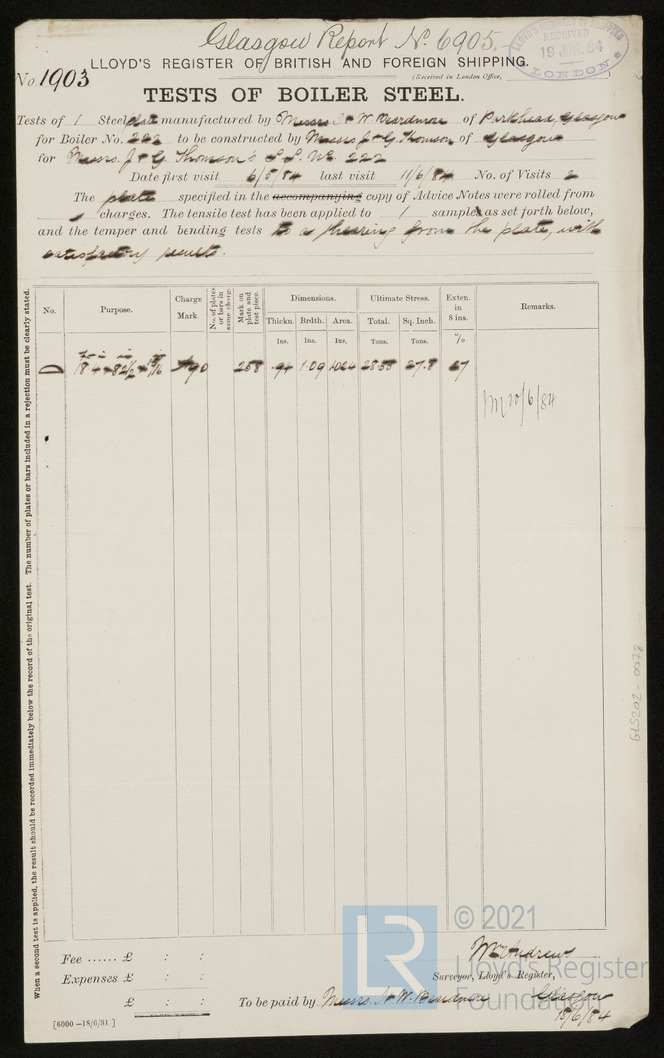 Glasgow Report No. 6905.
LLOYD'S REGISTER OF BRITISH AND FOREIGN SHIPPING.
LLOYD'S REGISTER OF SHIPPING
RECEIVED
19 JUN. 84
LONDON
No 1903
(Received in London Office,
TESTS OF BOILER STEEL.
Tests of 1 Steel plate manufactured by Messrs of Parkhead, Glasgow
for Boiler No. 222 to be constructed by Messrs J & G. Thomson of Glasgow
for Messrs. J & G. Thomson's S.S. No 222
Date first visit 6/5/84 last visit 11/6/84 No. of Visits 2
The plate specified in the accompanying copy of Advice Notes were rolled from
charges. The tensile test has been applied to 1 samples as set forth below,
and the temper and bending tests to a shearing from the plate, with
satisfactory results.
When a second test is applied, the result should be recorded immediately below the record of the original test. The number of plates or bars included in a rejection must be clearly stated.
No. Purpose. Charge Mark. No. of plates or bars in same charge Mark on plate and test piece. Dimensions. Ultimate Stress. Exten. in 8 ins. Remarks.
Thickn. Brdth. Area. Total. Sq. Inch.
Ins. Ins. Ins. Tons. Tons. %
258 .94 1.09 27.8 27
20/6/84
GLS202-0078
© 2021
Lloyd's Register
Foundation
LR
Fee ...... £ : :
Expenses £ : :
£ : :
Surveyor, Lloyd's Register,
To be paid by Messrs. Glasgow
18/6/84
[6000—18/6/81]